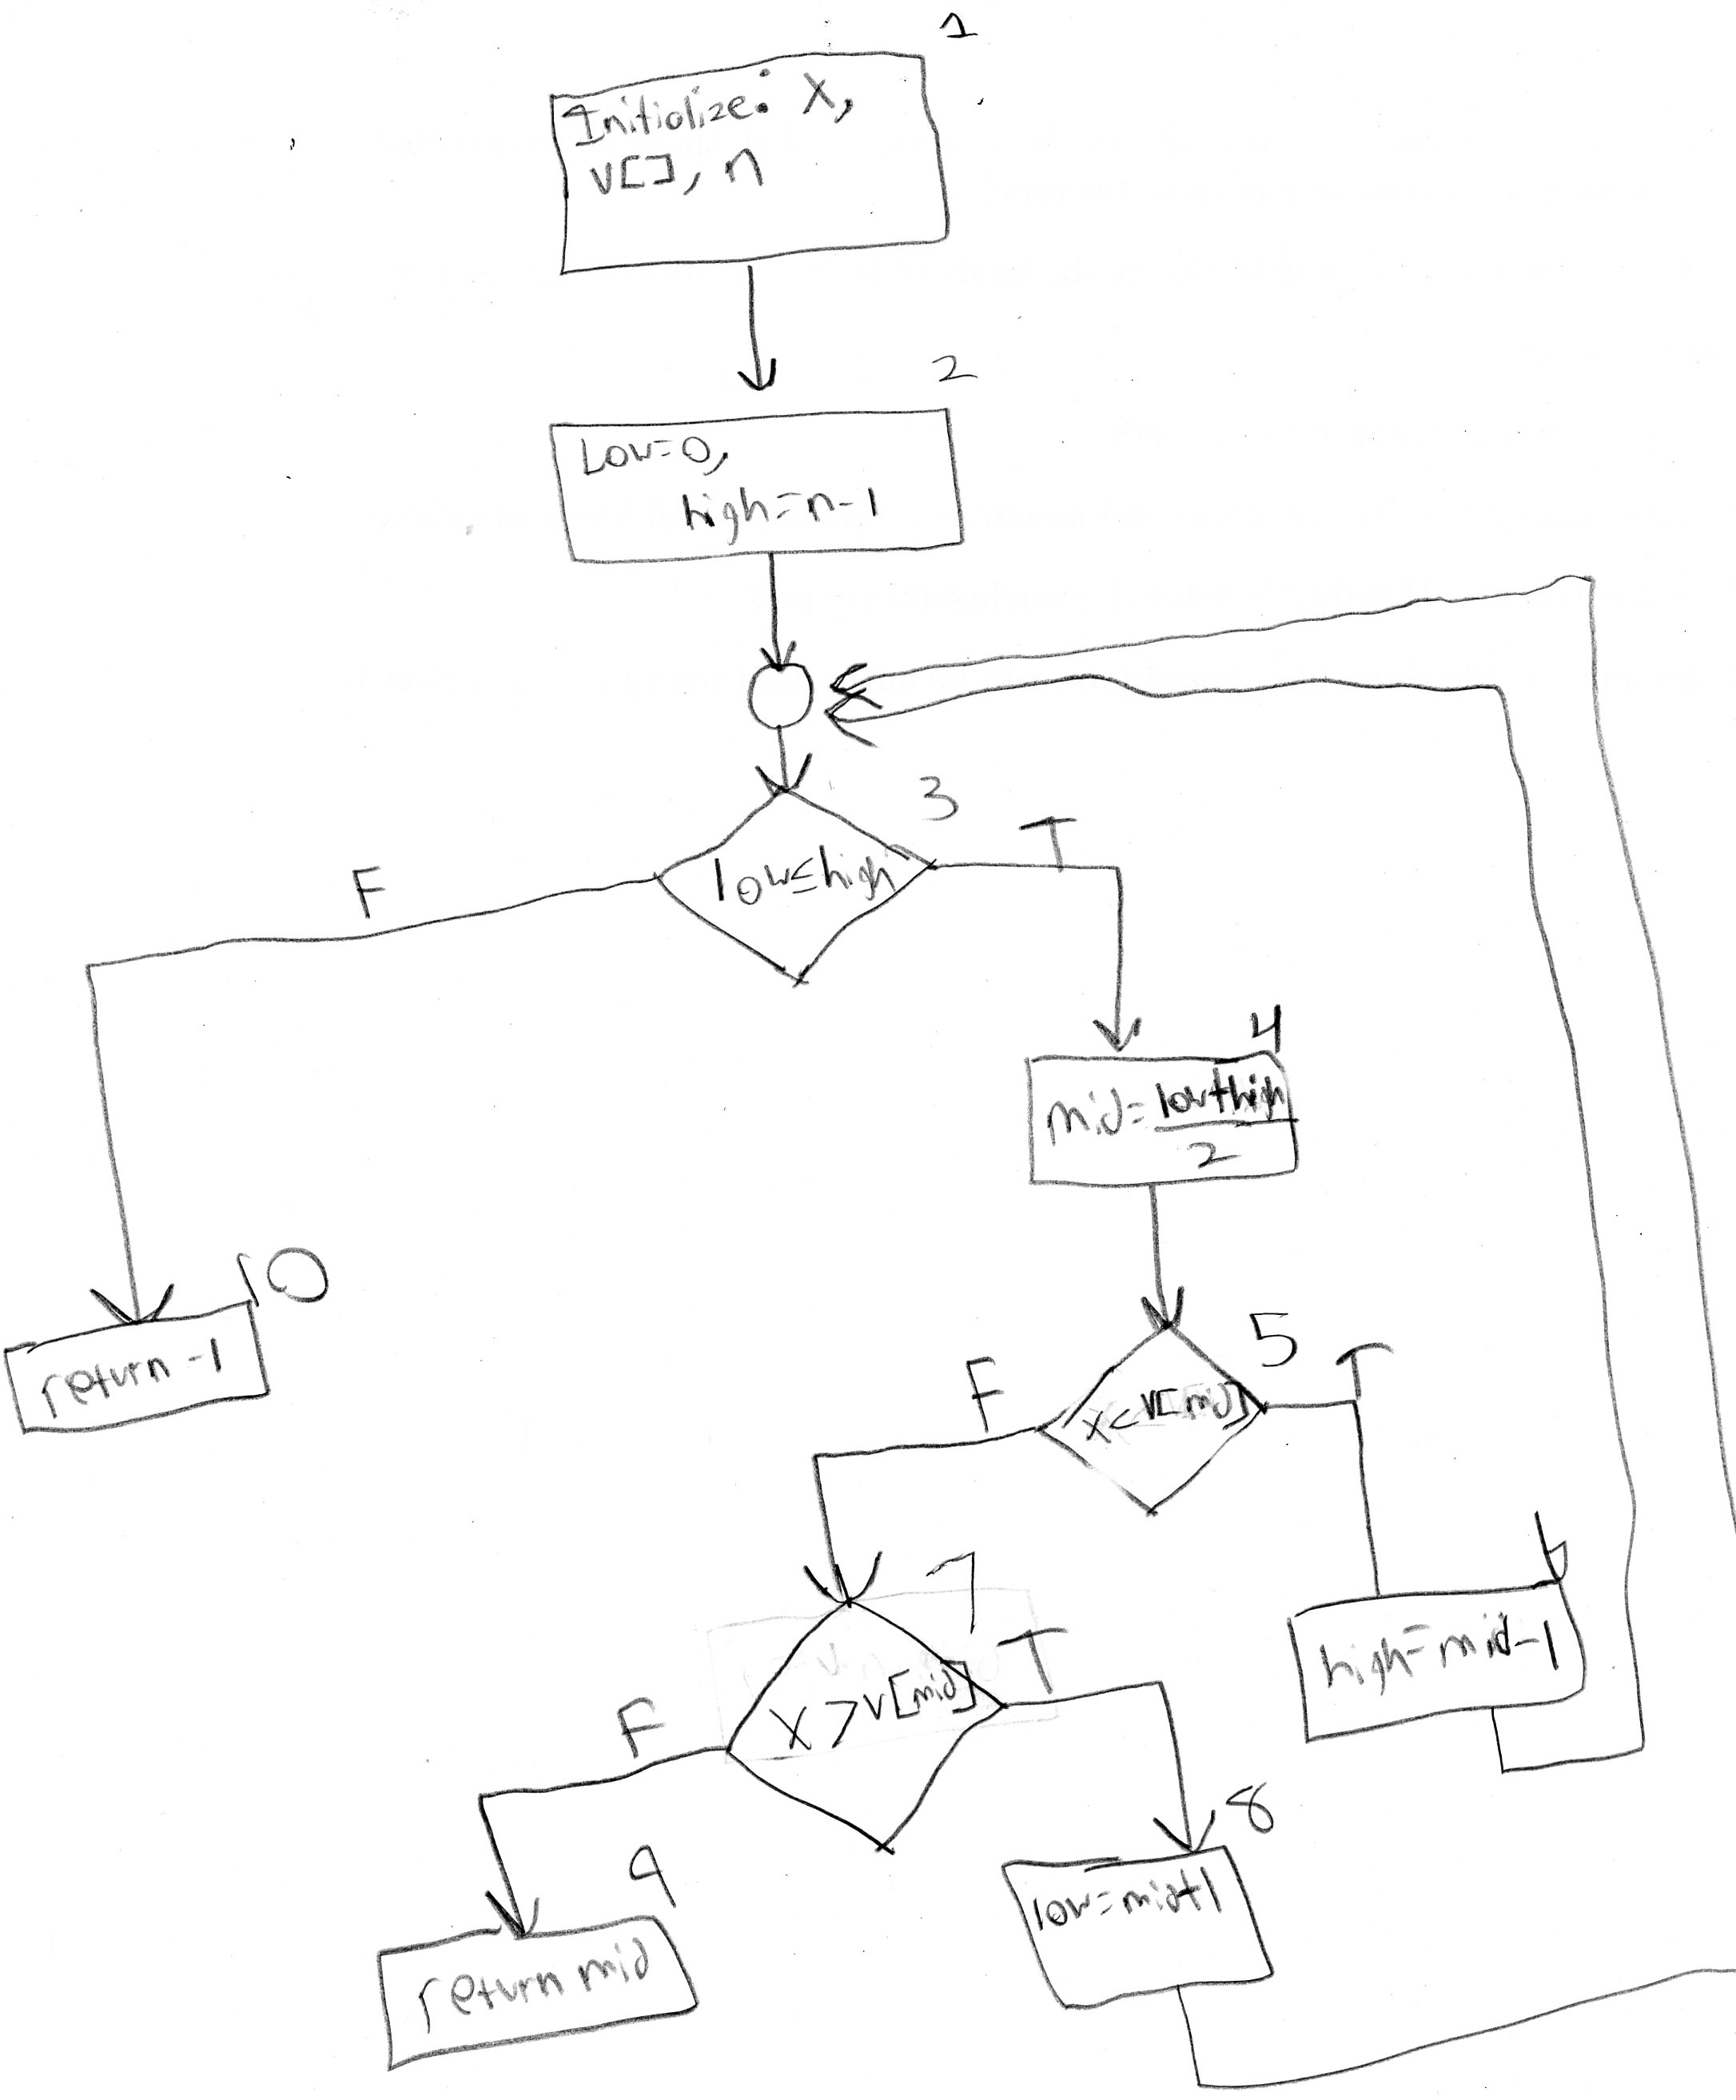 1
Initialize: X,
V[], n
2
Low=0,
high=n-1
3
low≤high
T
F
4
mid=low+high
2
10
return -1
5
x<v[mid]
T
F
6
high=mid-1
7
x>v[mid]
T
F
8
low=mid+1
9
return mid